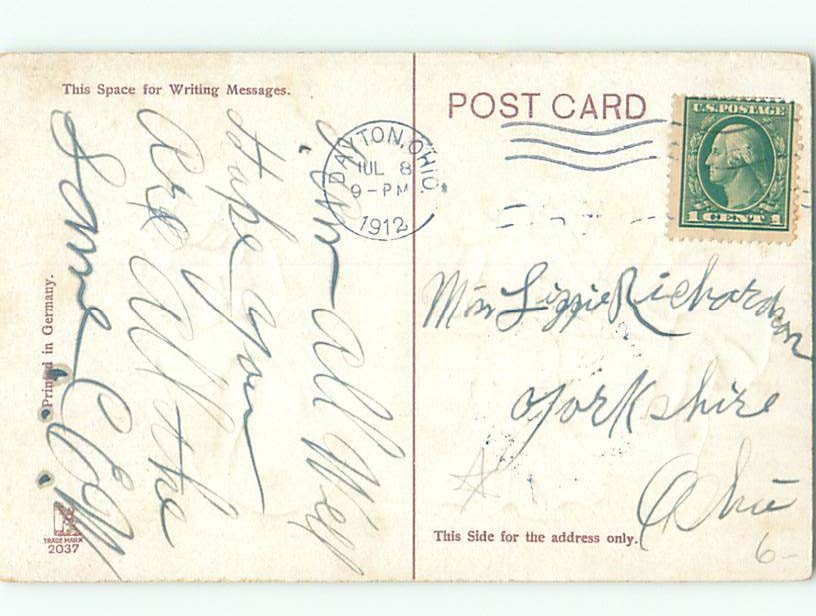 This Space for Writing Messages.
POST CARD
U.S. POSTAGE
1 CENT 1
DAYTON, OHIO.
JUL 8
9-PM
1912
im all Well
Hope you
are all the
Same C.M.
Miss Lizzie Richardson
Yorkshire
Ohio
6-
Printed in Germany.
TRADE MARK
2037
This Side for the address only.